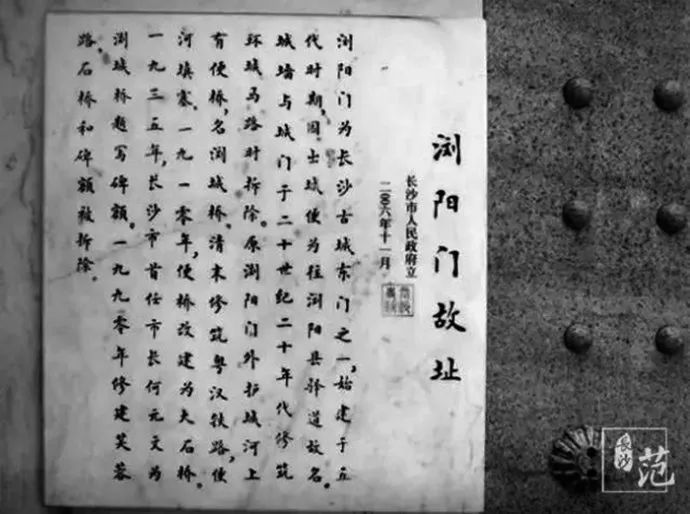 浏阳门故址
长沙市人民政府立
二〇〇六年十一月
浏阳门为长沙古城东门之一,始建于五
代时期,因出城便为往浏阳县驿道故名。
城墙与城门于二十世纪二十年代修筑
环城马路时拆除。原浏阳门外护城河上
有便桥,名浏城桥。清末修筑粤汉铁路,便
河填塞。一九一零年,便桥改建为大石桥。
一九三五年,长沙市首任市长何元文为
浏城桥题写碑额。一九九零年修建芙蓉
路,石桥和碑额被拆除。
长沙
范